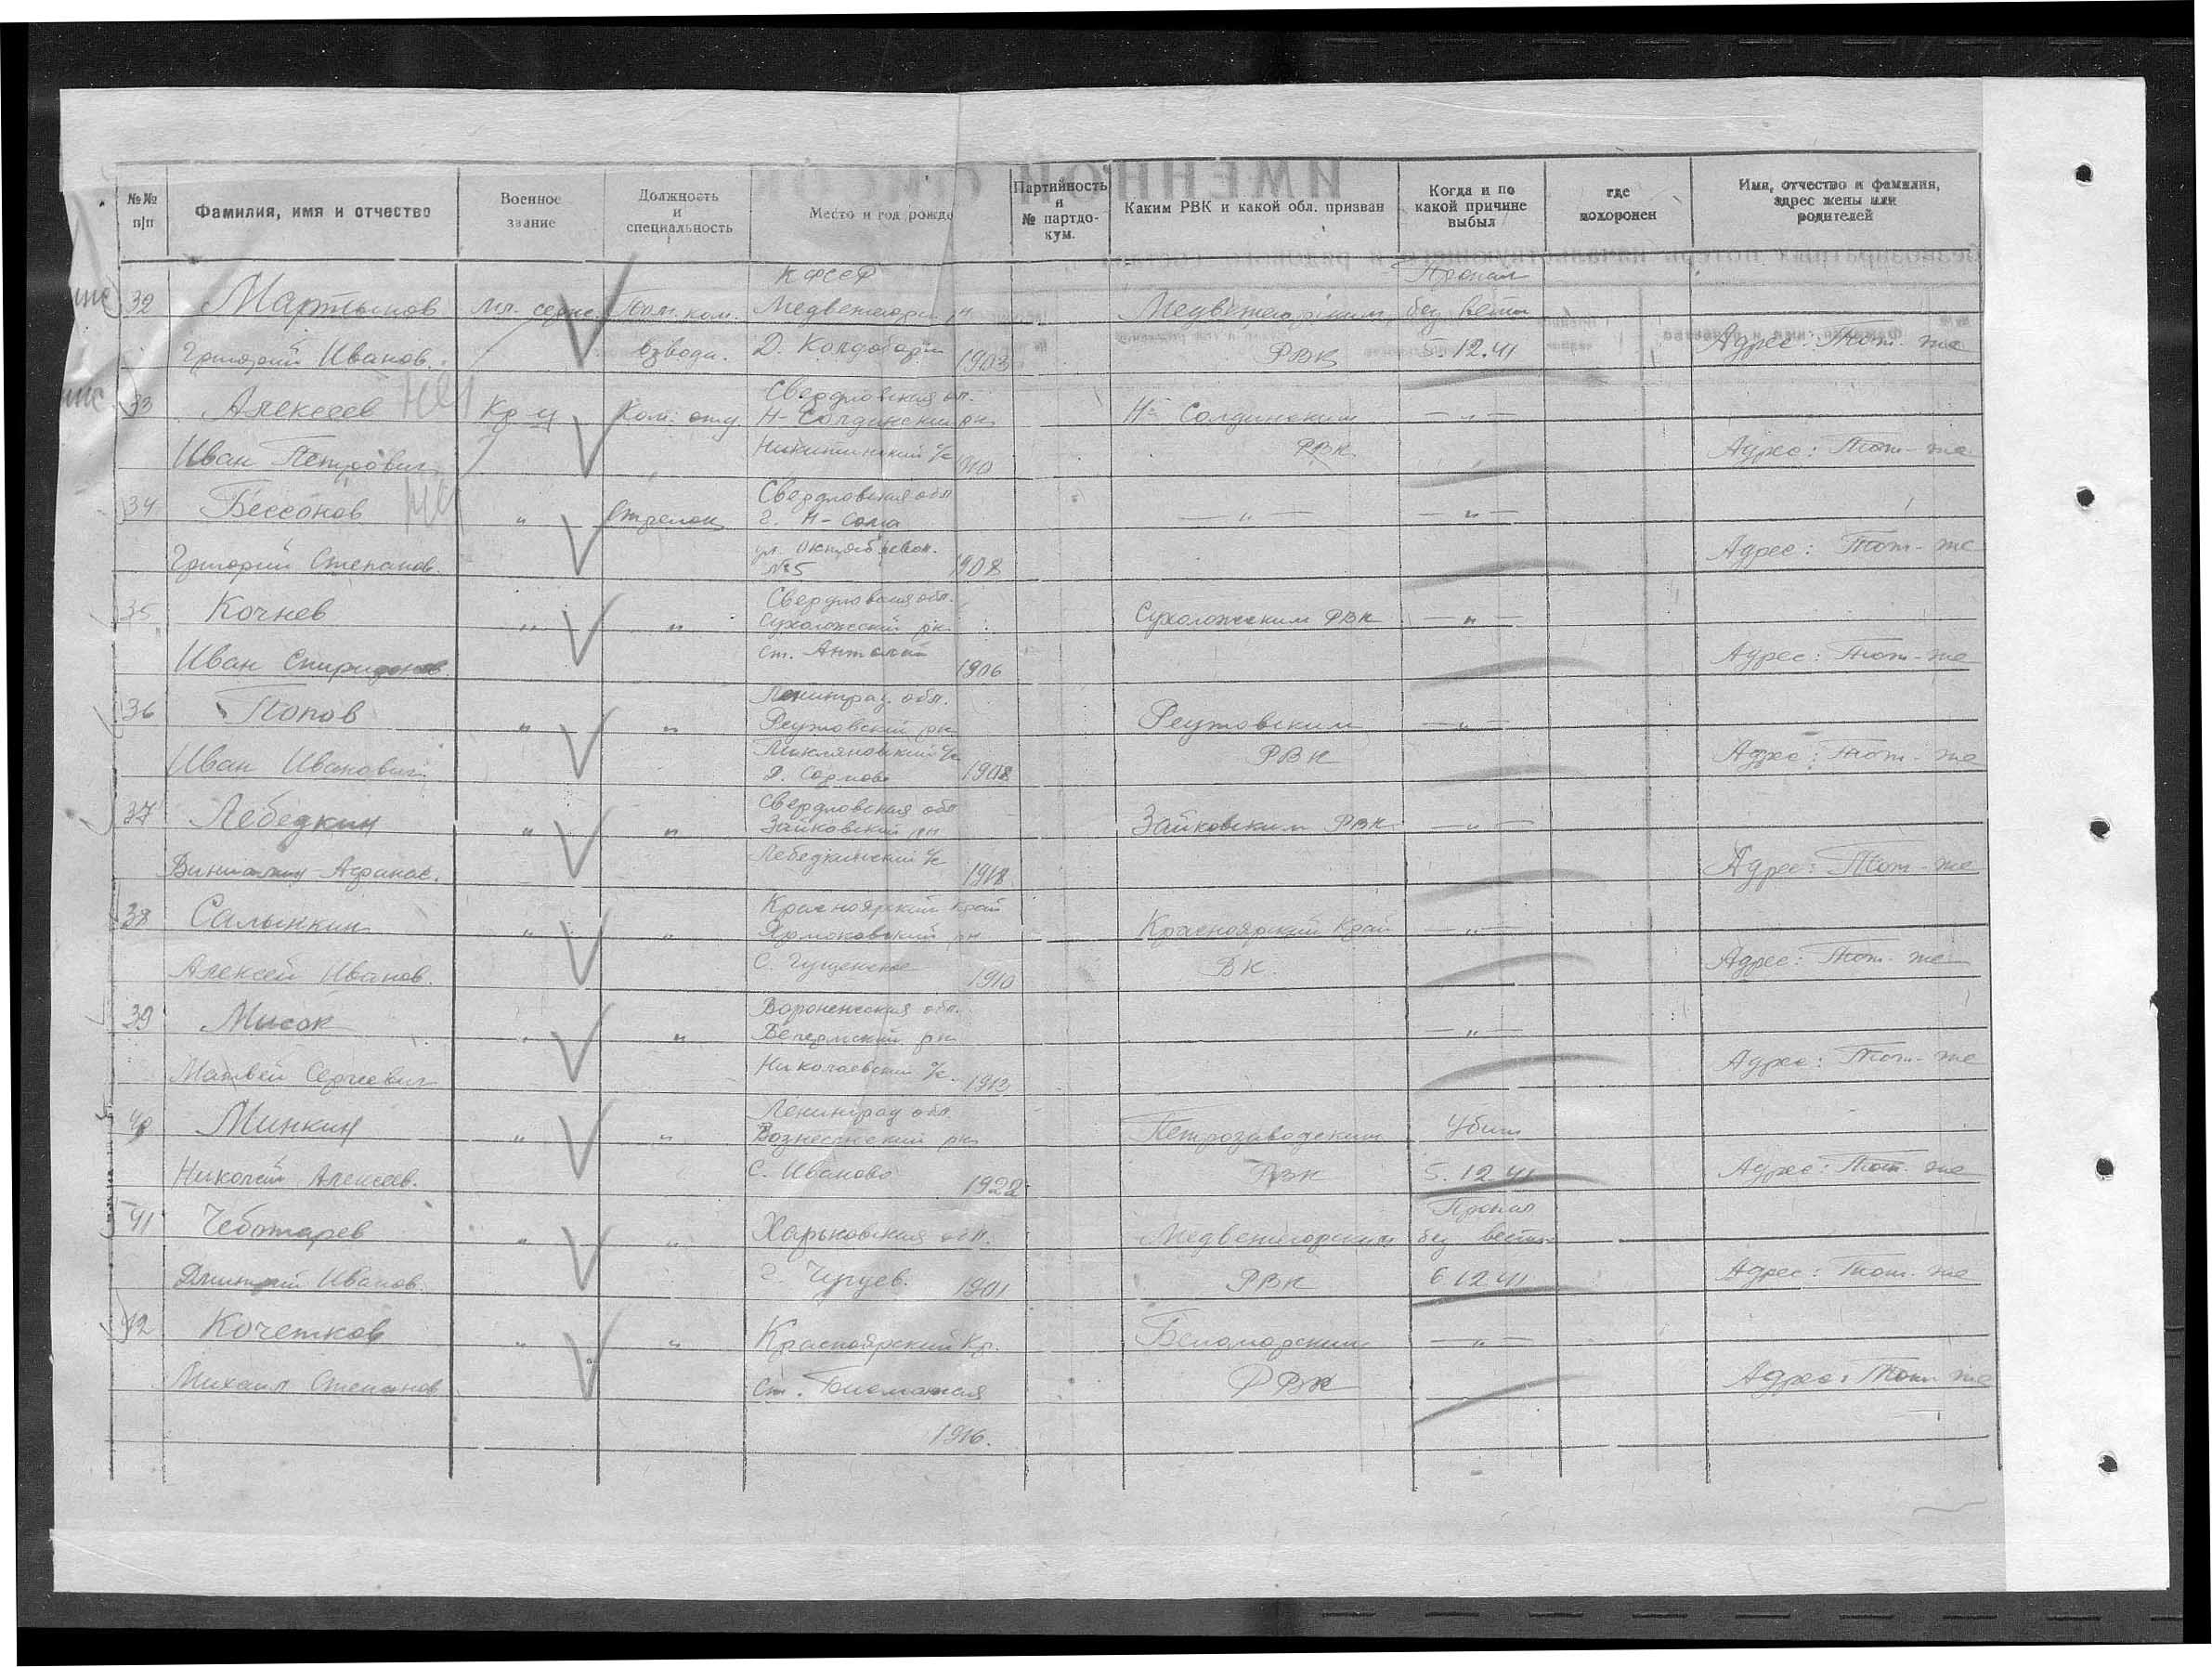 №№ п/п
Фамилия, имя и отчество
Военное звание
Должность и специальность
Место и год рожде
Партийность и № партдо-кум.
Каким РВК и какой обл. призван
Когда и по какой причине выбыл
где похоронен
Имя, отчество и фамилия, адрес жены или родителей
КФССР
Пропал
32 Мартынов Мл. серж. Пом. ком. Медвежегор. рн Медвежегорским без вести
Григорий Иванов. взвода. Д. 1903 РВК 5.12.41 Адрес: Тот-же
Свердловская обл.
33 Алексеев Кр-ц Ком. отд Н-Салдинский рн Н-Салдинским — " —
Иван Петрович Никитинский с/с 1910 РВК Адрес: Тот-же
Свердловская обл
34 Бессонов " Стрелок г. Н-Салда — " — — " —
ул. Октябрьская.
Григорий Степанов. №5 1908 Адрес: Тот-же
Свердловская обл.
35 Кочнев " " Сухоложский рн Сухоложским РВК — " —
Иван Спиридонов. ст. 1906 Адрес: Тот-же
Ленинград. обл.
36 Попов " " рн — " —
с/с РВК
Иван Иванович Д. 1908 Адрес: Тот-же
Свердловская обл
37 Лебедкин " " Зайковский рн Зайковским РВК — " —
Афанас. Лебедкинский с/с 1918 Адрес: Тот-же
Красноярский край
38 Салынкин " " рн Красноярский Край — " —
Алексей Иванов. С. 1910 ВК Адрес: Тот-же
Воронежская обл.
39 Мисок " " рн — " —
Матвей Сергеевич Николаевский с/с 1913 Адрес: Тот-же
Ленинград обл.
40 Минкин " " Вознесенский рн Петрозаводским Убит
Николай Алексеев. С. Иваново 1922 РВК 5.12.41 Адрес: Тот-же
Пропал
41 Чеботарев " " Харьковская обл. Медвежегорским без вести
Дмитрий Иванов. г. Чугуев. 1901 РВК 6 12 41 Адрес: Тот-же
42 Кочетков " " Красноярский Кр. Беломорским — " —
Михаил Степанов ст. РВК Адрес: Тот же
1916.